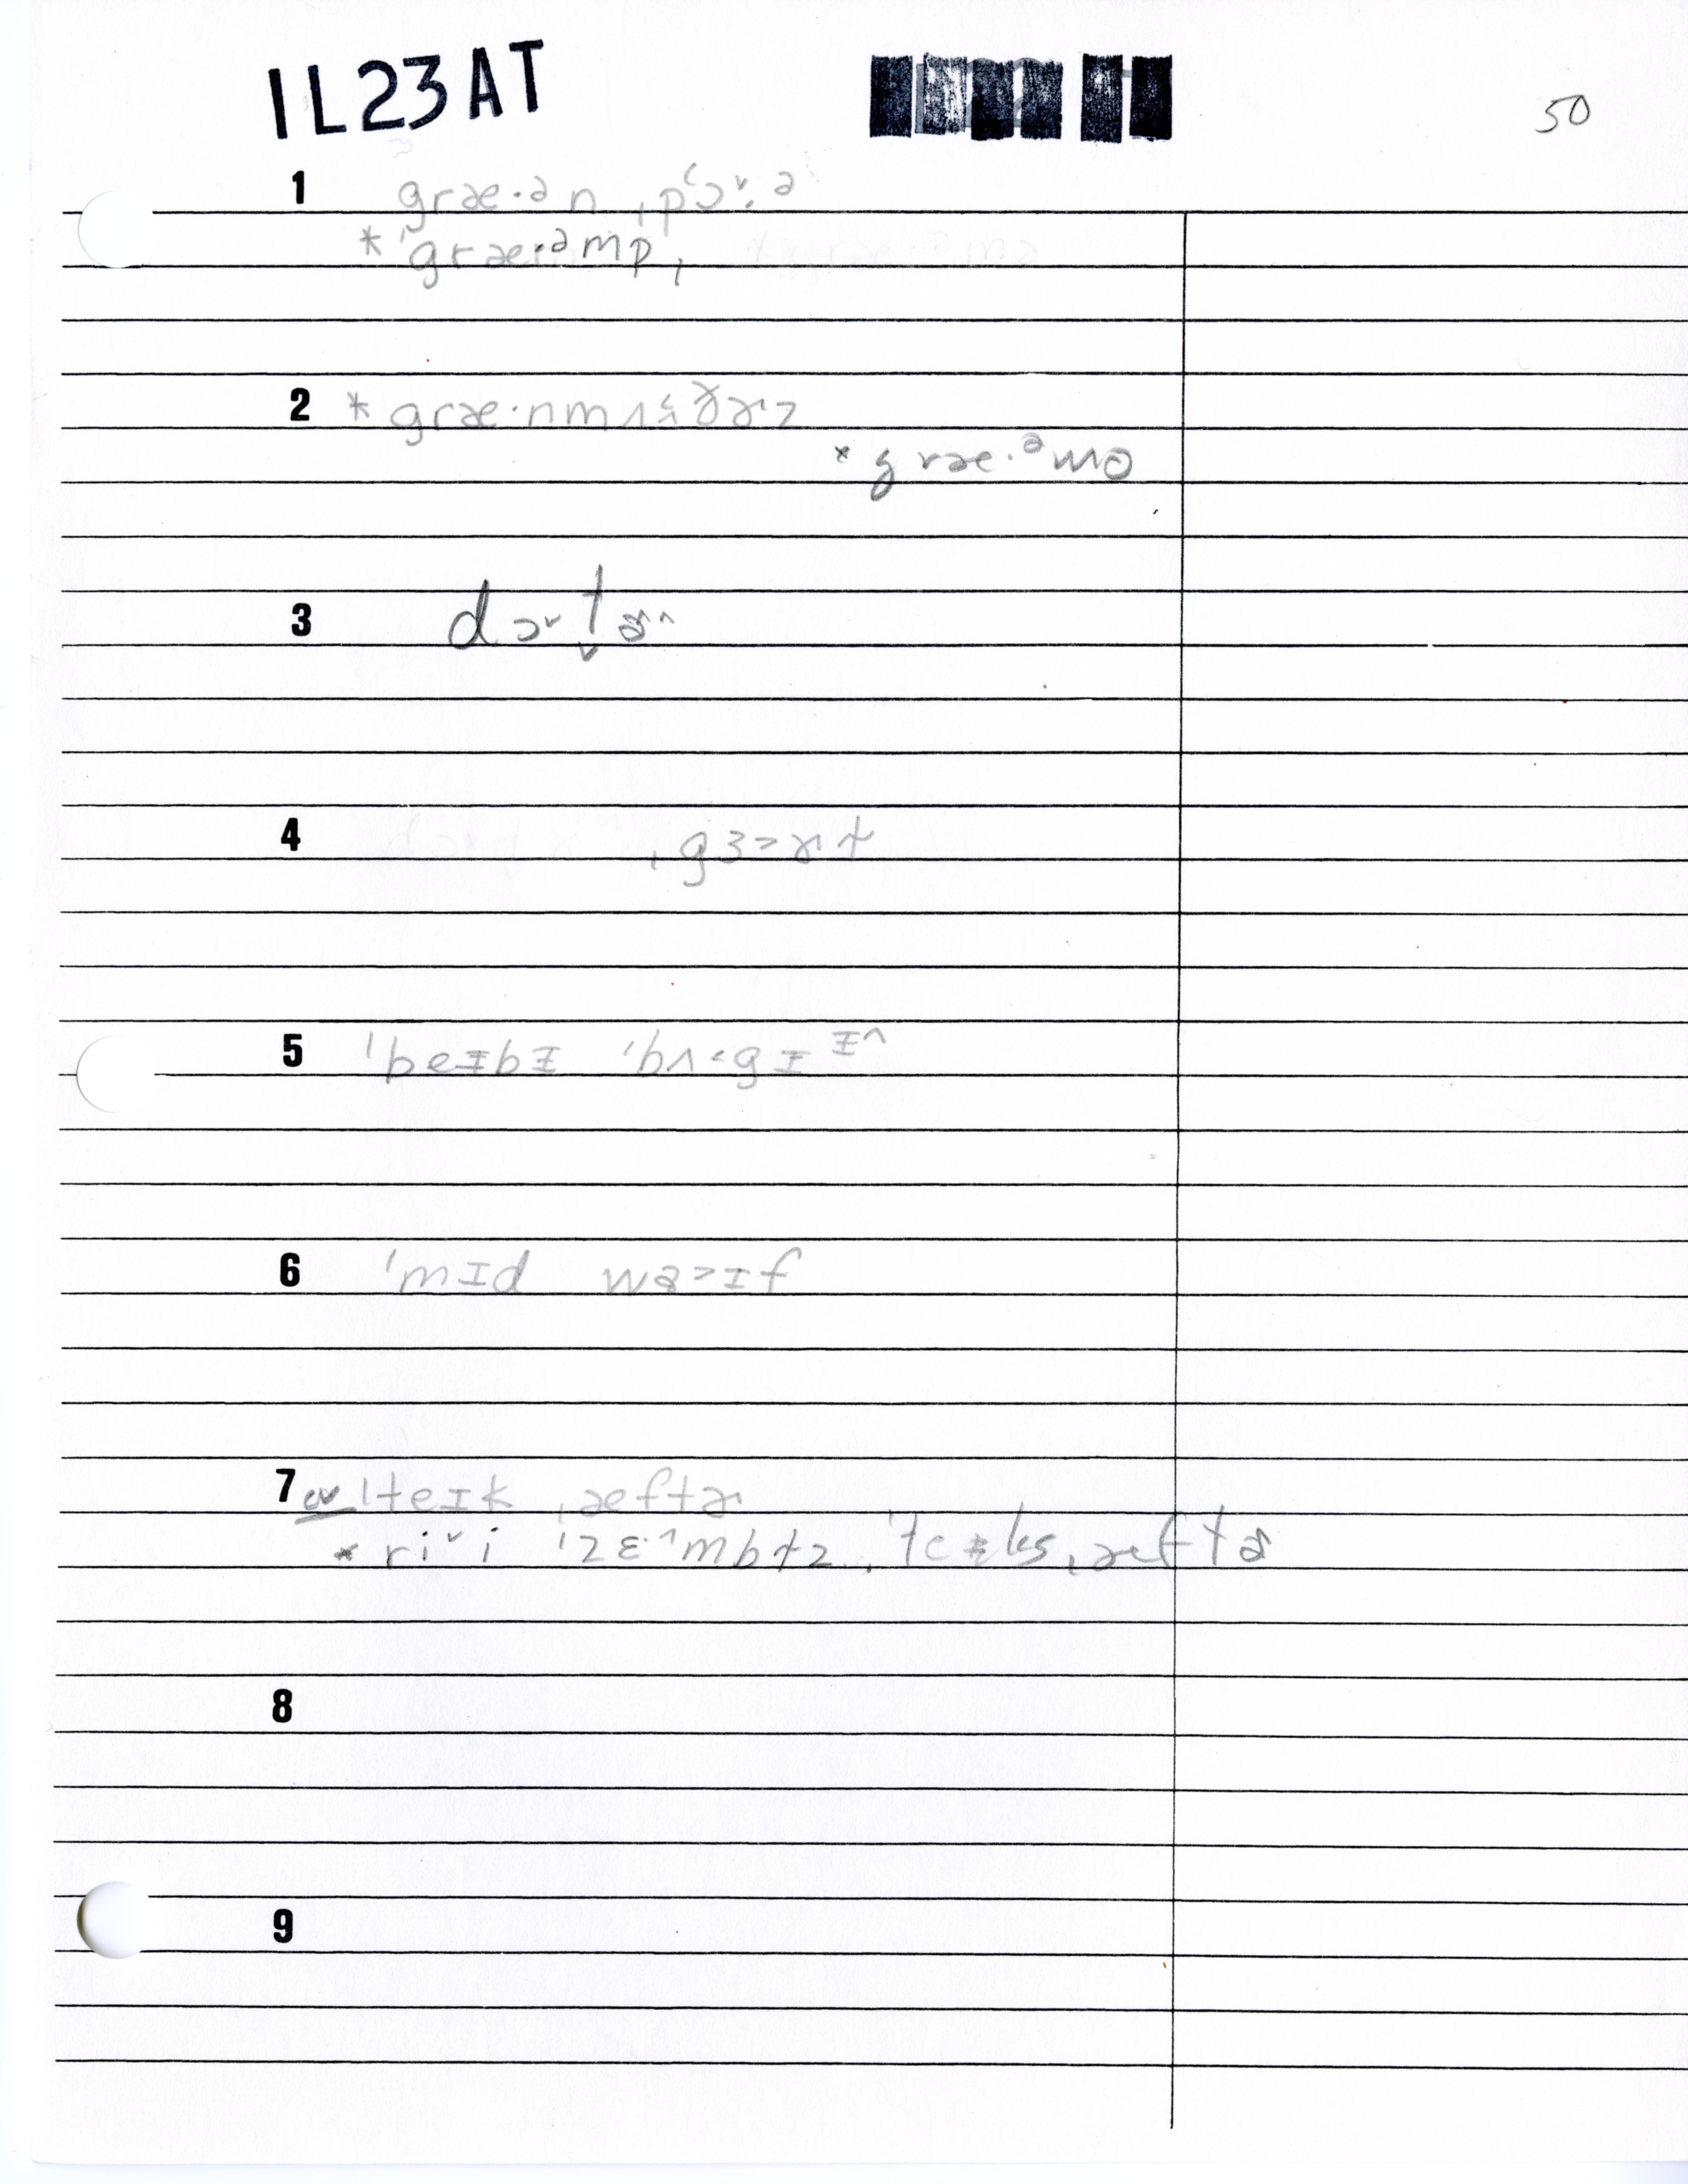 1L23AT
50
1 græ·ən ˌpʻɔ˅·ə
* ˈgræ·ᵊmp,
2 * græ·nm
* græ·ᵊmə
3 dɔ˅t̬ɚ^
4 ˌgɜ>ɚt
5 ˈbeɪbɪ ˈbʌ<gɪ ɪ^
6 ˈmɪd wa>ɪf
7 cv ˈteɪk ˌæftɚ
* ri˅i ˈzɛ·^mbtz ˈteɪks ˌæftɚ
8
9